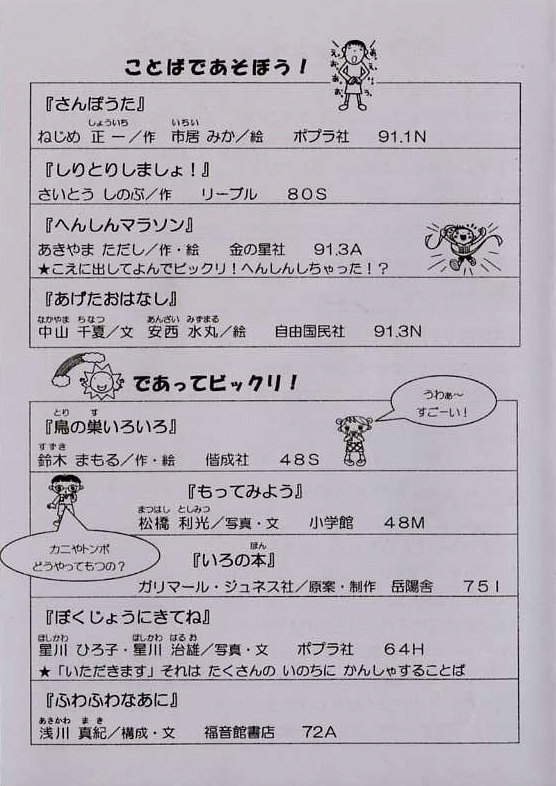 ことばであそぼう！
あ、え、い、
え、お、あ、お
う、
『さんぽうた』
しょういち いちい
ねじめ 正一／作 市居 みか／絵 ポプラ社 91.1N
『しりとりしましょ！』
さいとう しのぶ／作 リーブル 80S
『へんしんマラソン』
あきやま ただし／作・絵 金の星社 91.3A
★こえに出してよんでビックリ！へんしんしちゃった！？
『あげたおはなし』
なかやま ちなつ あんざい みずまる
中山 千夏／文 安西 水丸／絵 自由国民社 91.3N
であってビックリ！
うわぁ～
すごーい！
とり す
『鳥の巣いろいろ』
すずき
鈴木 まもる／作・絵 偕成社 48S
『もってみよう』
まつはし としみつ
松橋 利光／写真・文 小学館 48M
カニやトンボ
どうやってもつの？
ほん
『いろの本』
ガリマール・ジュネス社／原案・制作 岳陽舎 75I
『ぼくじょうにきてね』
ほしかわ ほしかわ はるお
星川 ひろ子・星川 治雄／写真・文 ポプラ社 64H
★「いただきます」それは たくさんの いのちに かんしゃすることば
『ふわふわなあに』
あさかわ まき
浅川 真紀／構成・文 福音館書店 72A